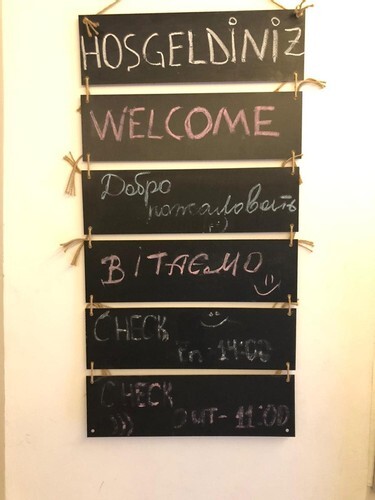 HOŞGELDİNİZ
WELCOME
Добро
пожаловать
ВІТАЄМО
CHECK
in - 14:00
CHECK
out - 11:00